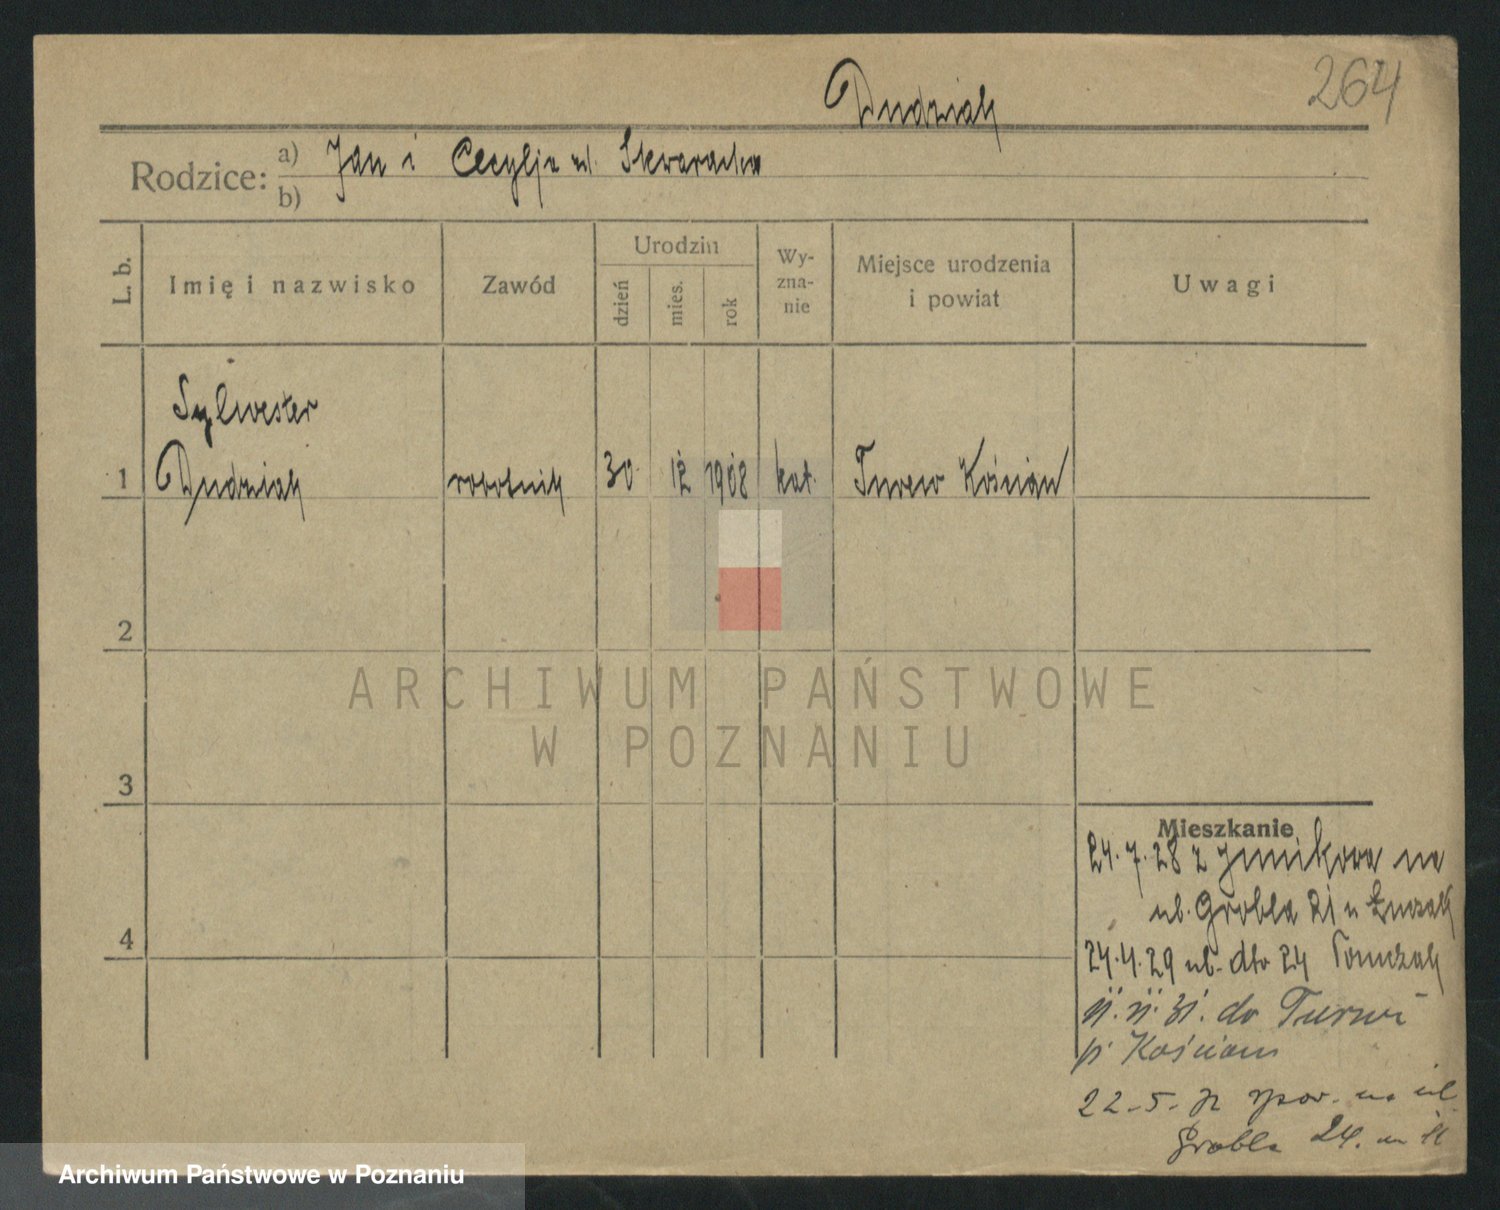 264
Dudziak
Rodzice: a) Jan i Cecylja ul. Skwaracka
b)
L. b.
Imię i nazwisko
Zawód
Urodzin
dzień
mies.
rok
Wy-
zna-
nie
Miejsce urodzenia
i powiat
Uwagi
Sylwester
1 Dudziak robotnik 30 12 1908 kat. Turew Kościan
2
ARCHIWUM PAŃSTWOWE
W POZNANIU
3
Mieszkanie
24.7.28 z Junikowa na
ul. Grobla 21 u
4
24.4.29 ul. dto 24 Tomczak
31. do Turwi
p. Kościan
22-5- na ul
Grobla 24. m 11
Archiwum Państwowe w Poznaniu